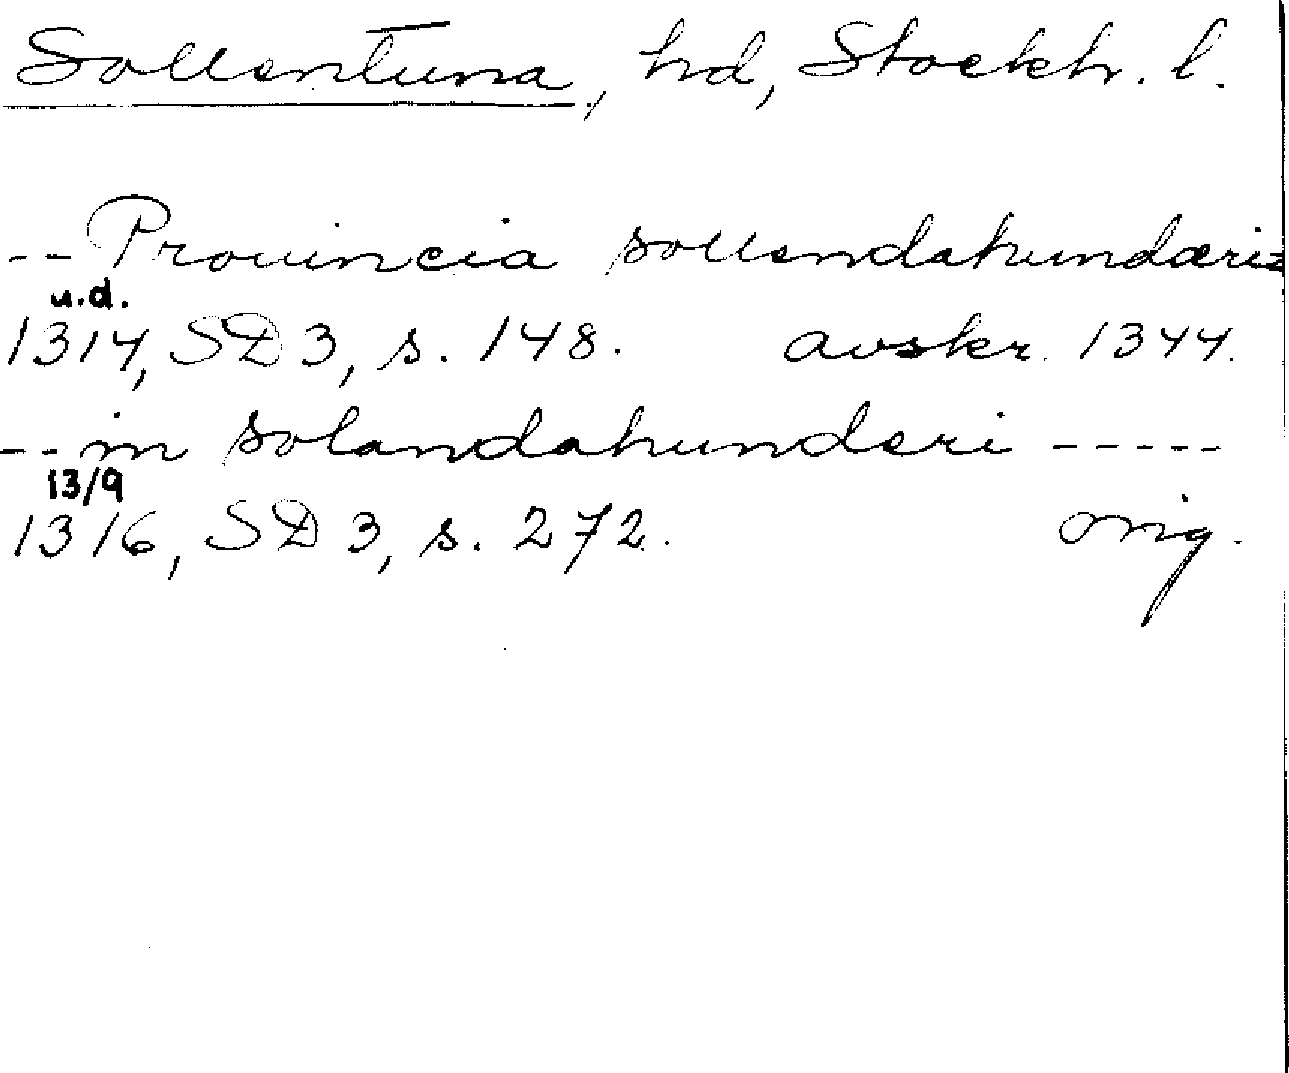 Sollentuna, hd, Stockh. l.
-- Prouincia sollendahundæri=
u.d.
1314, SD 3, s. 148. avskr. 1344.
-- in solandahunderi -----
13/9
1316, SD 3, s. 272. orig.